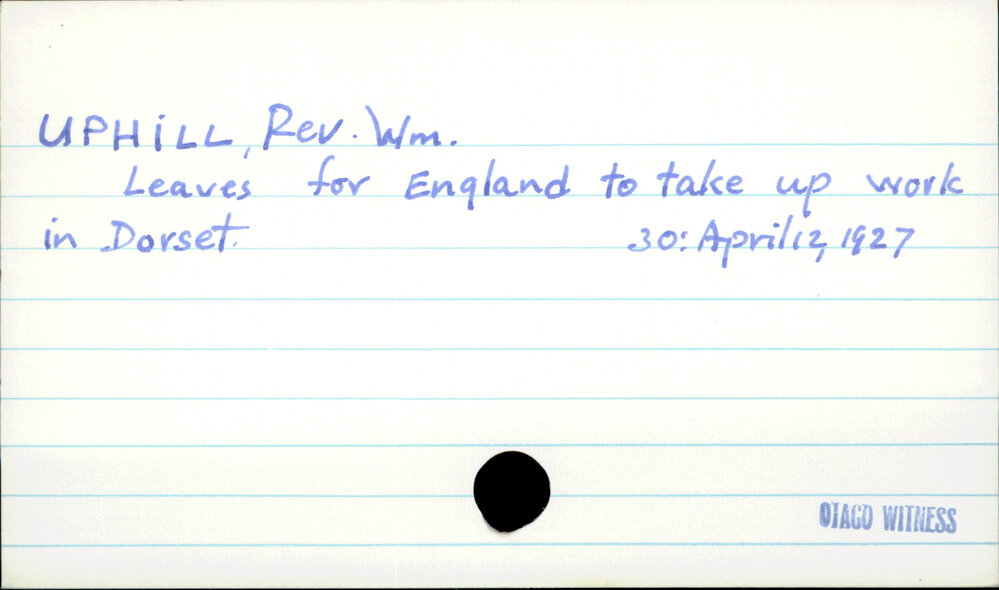 UPHILL, Rev. Wm.
Leaves for England to take up work
in Dorset. 30: April 12, 1927
OTAGO WITNESS